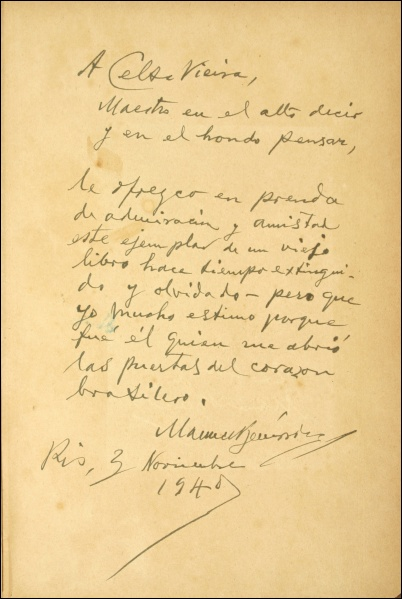 A Celso Vieira,
Maestro en el alto decir
y en el hondo pensar,
le ofrezco en prenda
de admiración y amistad
este ejemplar de un viejo
libro hace tiempo extingui-
do y olvidado - pero que
yo mucho estimo porque
fué él quien me abrió
las puertas del corazon
brasilero.
Manuel Bernárdez
Rio, 3 Noviembre
1940